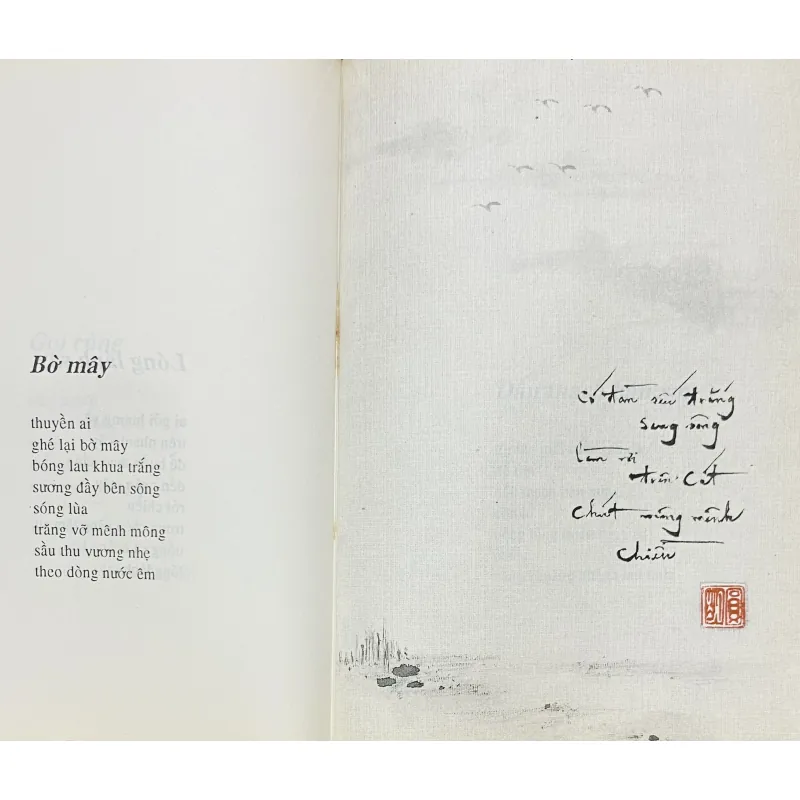 Bờ mây
thuyền ai
ghé lại bờ mây
bóng lau khua trắng
sương đầy bên sông
sóng lùa
trăng vỡ mênh mông
sầu thu vương nhẹ
theo dòng nước êm
Có đàn sếu trắng
sang sông
làm rơi
trên cát
chút mông mênh
chiều